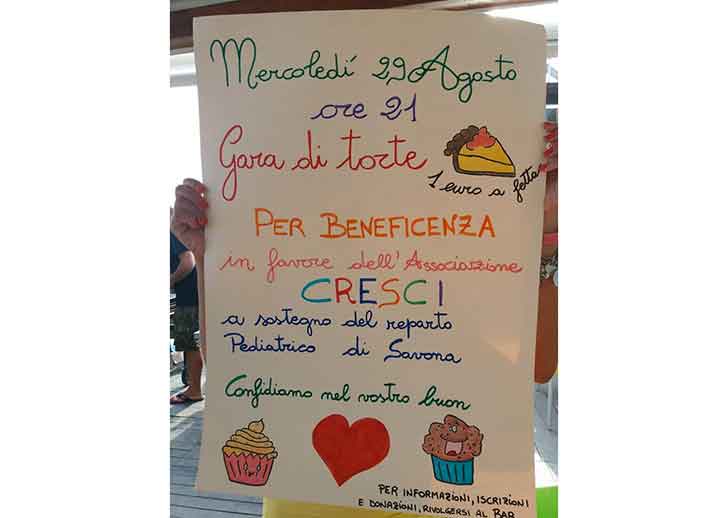 Mercoledí 29 Agosto
ore 21
Gara di torte
1 euro a fetta
PER BENEFICENZA
in favore dell'Associazione
CRESCI
a sostegno del reparto
Pediatrico di Savona
Confidiamo nel vostro buon
PER INFORMAZIONI, ISCRIZIONI
E DONAZIONI, RIVOLGERSI AL BAR